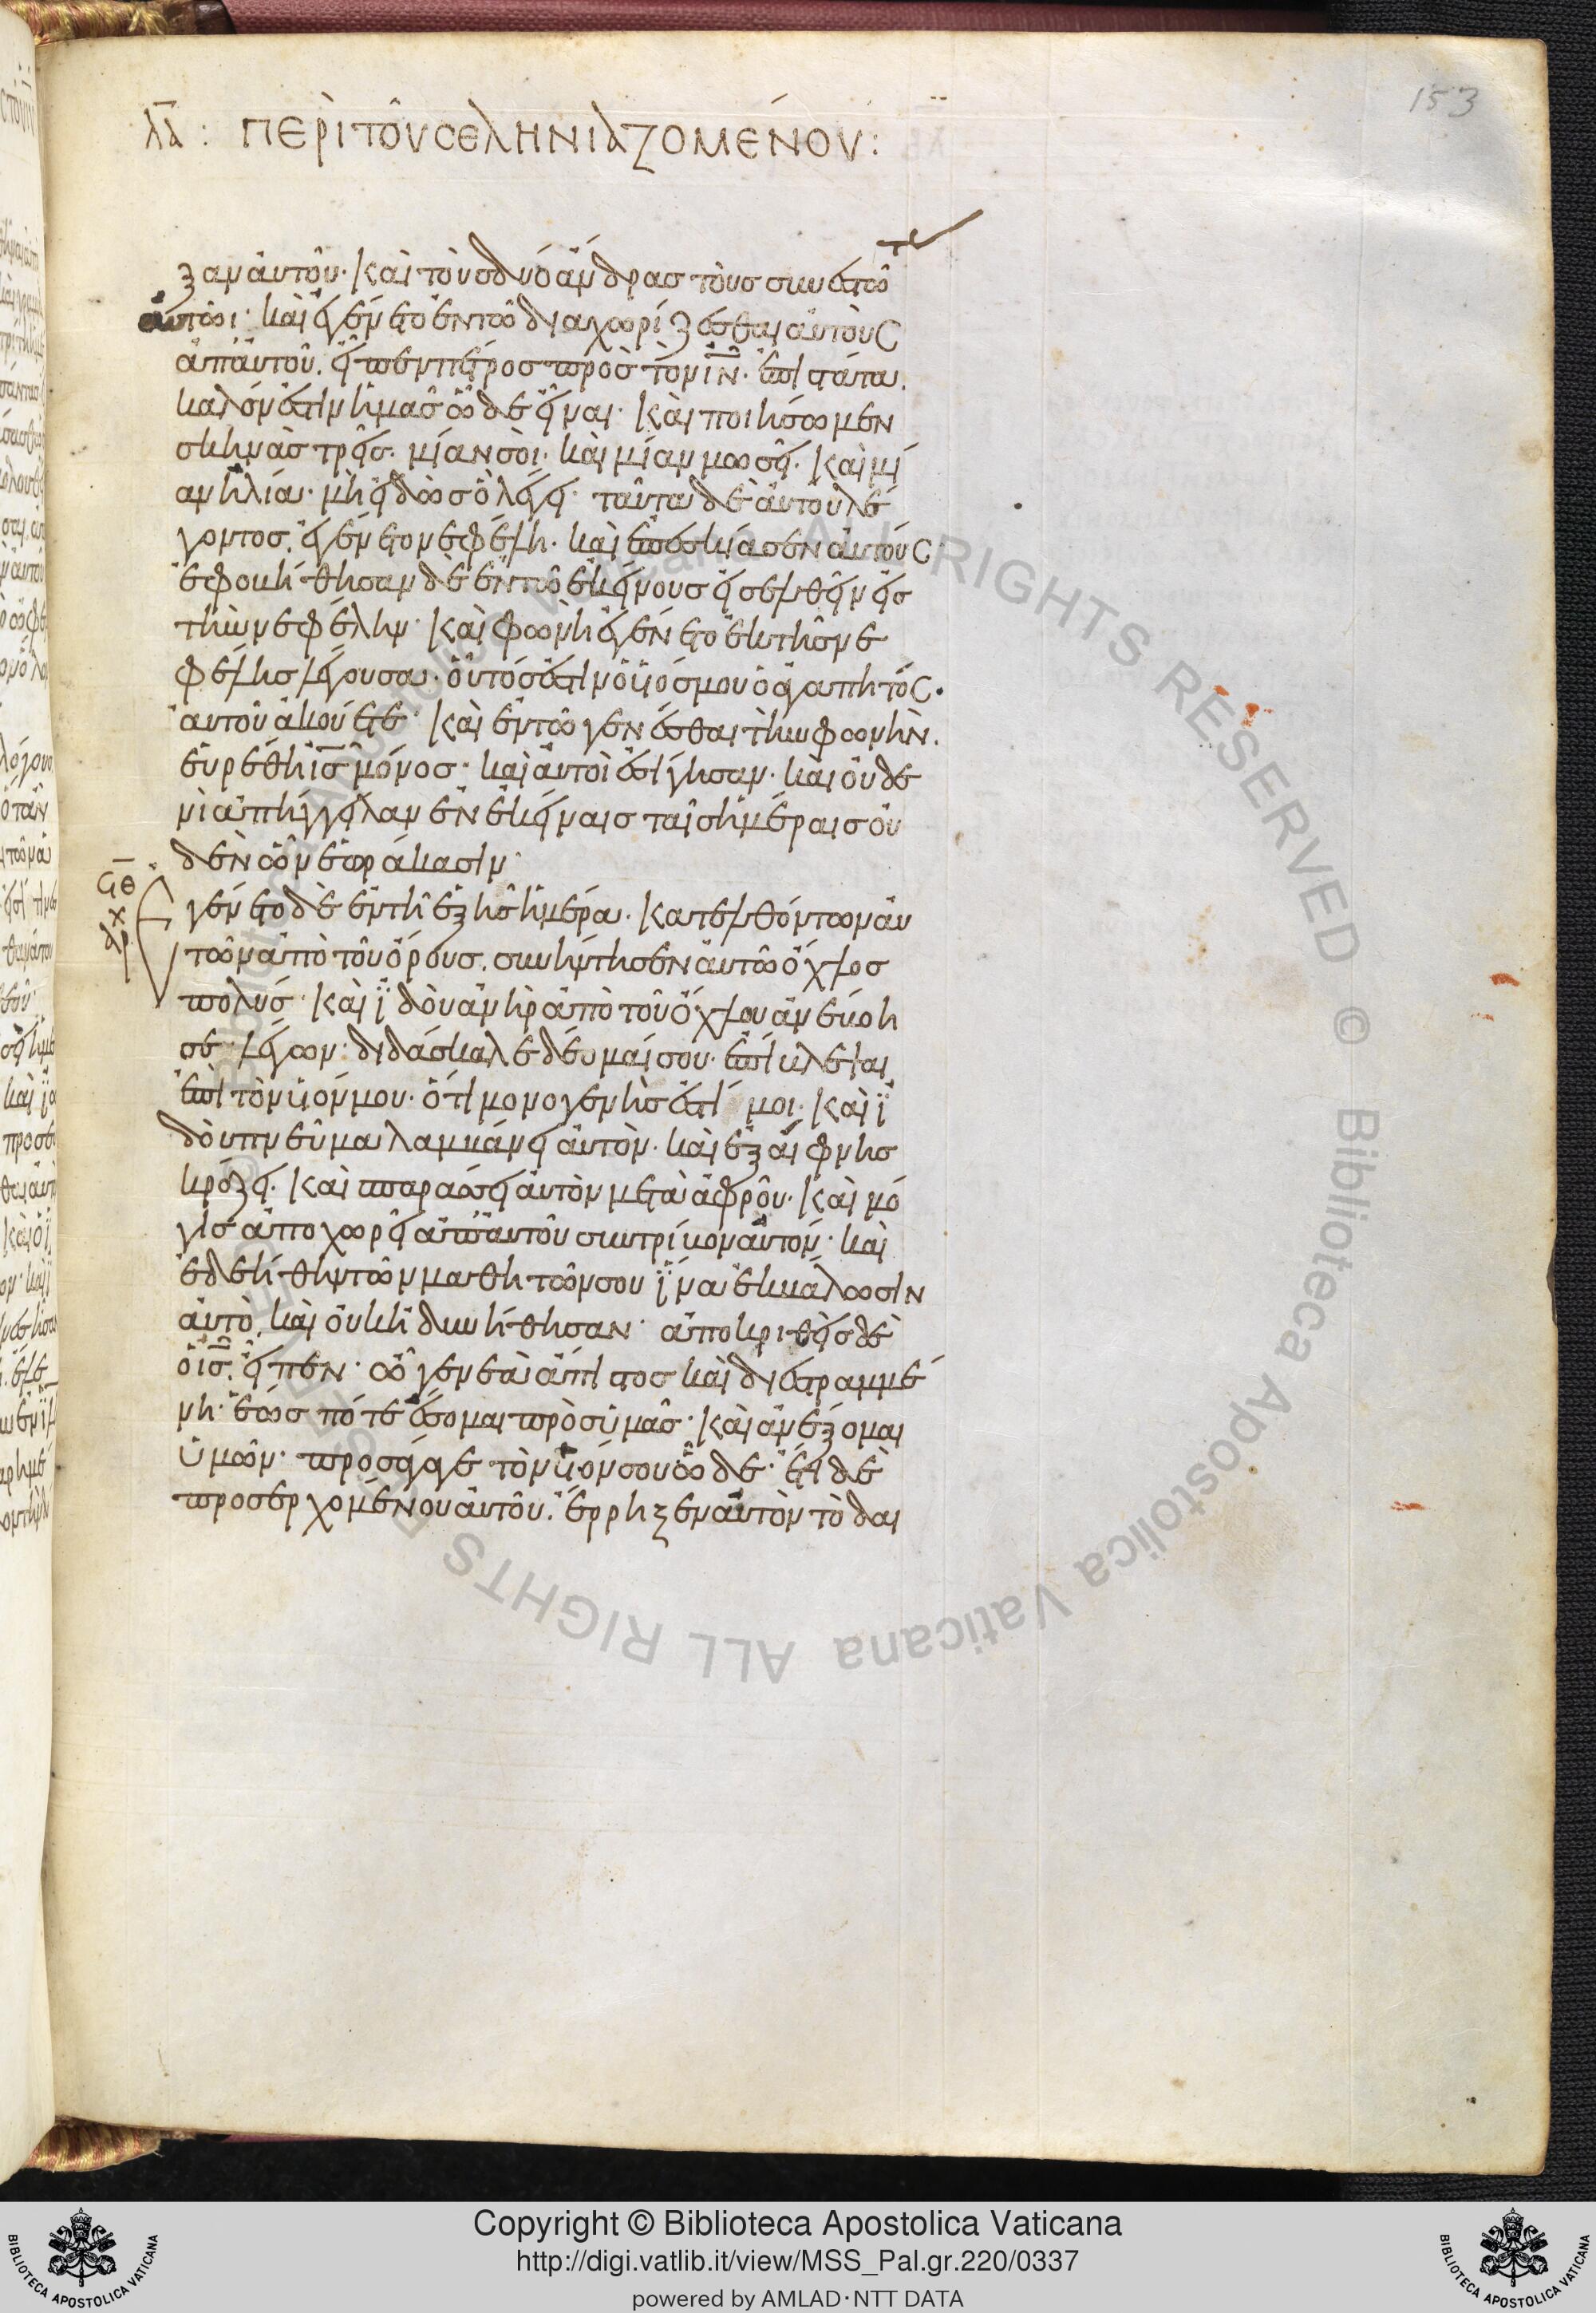 153
λα : ΠΕΡὶ ΤΟῦ ϹΕΛΗΝΙΑΖΟΜΕΝΟΥ :
τε
ξαν αὐτοῦ· καὶ τοὺς δύο ἄνδρας τοὺς συνεστῶ
αὐτῶι· καὶ ἐγένετο ἐν τῶ διαχωρίζεσθαι αὐτοὺς
ἀπ' αὐτοῦ. εἶπεν πέτρος πρὸς τὸν ιν· ἐπιστάτα.
καλόν ἐστιν ἡμᾶς ὧδε εἶναι· καὶ ποιήσωμεν
σκηνὰς τρεῖς. μίαν σοὶ· καὶ μίαν μωσεῖ. καὶ μί
αν ἠλία· μὴ εἰδὼς ὃ λέγει· ταῦτα δὲ αὐτοῦ λέ
γοντος. ἐγένετο νεφέλη· καὶ ἐπεσκίασεν αὐτούς
ἐφοβήθησαν δὲ ἐν τῶ ἐκείνους εἰσελθεῖν εἰς
τὴν νεφέλην· καὶ φωνὴ ἐγένετο ἐκ τῆς νε
φέλης λέγουσα· οὗτός ἐστιν ὁ υἱός μου ὁ ἀγαπητός.
αὐτοῦ ἀκούετε· καὶ ἐν τῶ γενέσθαι τὴν φωνὴν.
εὑρέθη ις μόνος· καὶ αὐτοὶ ἐσίγησαν· καὶ οὐδε
νὶ ἀπήγγειλαν ἐν ἐκείναις ταῖς ἡμέραις οὐ
δὲν ὧν ἑωράκασιν·
ϟθ
αρχ
γένετο δὲ ἐν τῆ ἑξῆς ἡμέρα. κατελθόντων αὐ
τῶν ἀπὸ τοῦ ὄρους. συνήντησεν αὐτῶ ὄχλος
πολύς· καὶ ἰδοὺ ἀνὴρ ἀπὸ τοῦ ὄχλου ἀνεβόη
σε λέγων· διδάσκαλε δέομαί σου· ἐπίβλεψαι
ἐπὶ τὸν υἱόν μου· ὅτι μονογενὴς ἐστί μοι· καὶ ἰ
δοὺ πνεῦμα λαμβάνει αὐτὸν· καὶ ἐξαίφνης
κράζει. καὶ σπαράσσει αὐτὸν μετὰ ἀφροῦ· καὶ μό
γις ἀποχωρεῖ ἀπ' αὐτοῦ συντρίβον αὐτόν· καὶ
ἐδεήθην τῶν μαθητῶν σου ἵνα ἐκβάλωσιν
αὐτὸ. καὶ οὐκ ἠδυνήθησαν· ἀποκριθεὶς δὲ
ὁ ις. εἶπεν· ὦ γενεὰ ἄπιστος καὶ διεστραμμέ
νη· ἕως πότε ἔσομαι πρὸς ὑμᾶς· καὶ ἀνέξομαι
ὑμῶν· προσάγαγε τὸν υἱόν σου ὧδε· ἔτι δὲ
προσερχομένου αὐτοῦ. ἔρρηξεν αὐτὸν τὸ δαι
Copyright © Biblioteca Apostolica Vaticana
http://digi.vatlib.it/view/MSS_Pal.gr.220/0337
powered by AMLAD·NTT DATA